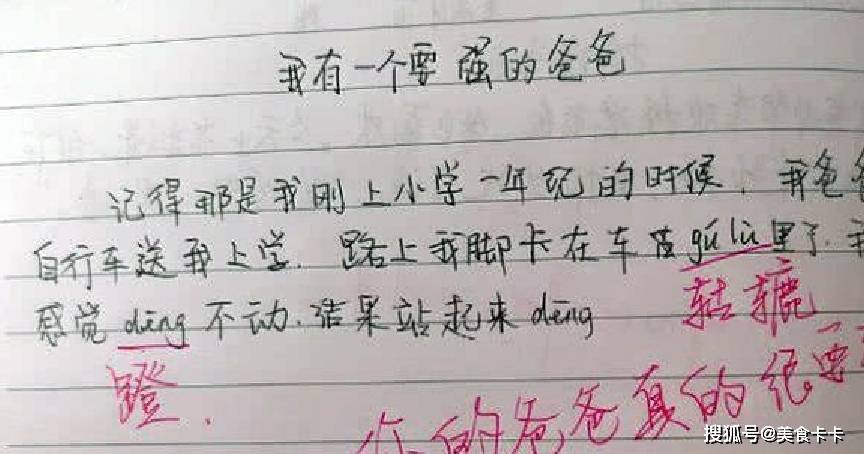 我有一个要强的爸爸
记得那是我刚上小学一年纪的时候，我爸爸
自行车送我上学. 路上我脚卡在车gú lù里了. 我
感觉dēng不动.结果站起来dēng
轱辘
蹬.
你的爸爸真的很要
搜狐号@美食卡卡